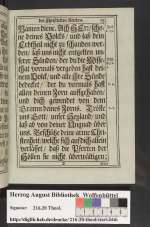 der Christlichen Kirchen.
Namen diene. Ach HErr, schone
deines Volcks/ und laß dein
Erbtheil nicht zu schanden werden:
laß uns nicht entgelten unserer
Sünden; der du die
hast vormals vergeben
nem Volck, und alle ihre Sünde
bedecket/ der du vormals hast
deinen Zorn auffgehaben/
und dich gewendet von dem
Grimm deines Zorns. Tröste
uns Gott/ unser Heyland/ und
laß ab von deiner Ungnad über
uns. Beschütze deine arme Christenheit/
welche sich auf dich allein
verlässet/ daß die Pforten der
Höllen sie nicht überwältigen;
Herzog August Bibliothek Wolfenbüttel
Signatur: 216.20 Theol.
http://diglib.hab.de/drucke/216-20-theol/start.htm